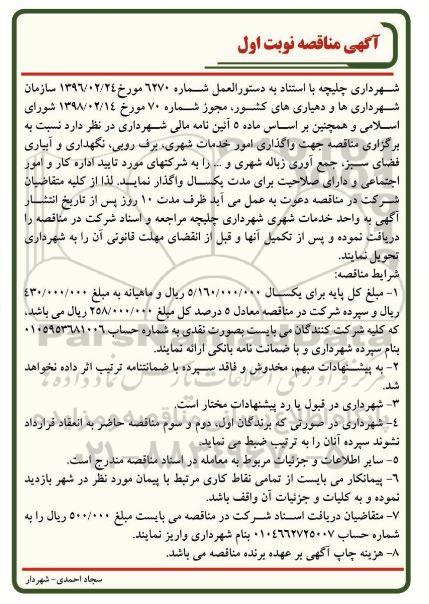 آگهی مناقصه نوبت اول
شهرداری چلیچه با استناد به دستورالعمل شماره ۶۲۷۰ مورخ ۱۳۹۶/۰۲/۲۴ سازمان
شهرداری ها و دهیاری های کشور، مجوز شماره ۷۰ مورخ ۱۳۹۸/۰۲/۱۴ شورای
اسلامی و همچنین بر اساس ماده ۵ آئین نامه مالی شهرداری در نظر دارد نسبت به
برگزاری مناقصه جهت واگذاری امور خدمات شهری، برف روبی، نگهداری و آبیاری
فضای سبز، جمع آوری زباله شهری و ... را به شرکتهای مورد تایید اداره کار و امور
اجتماعی و دارای صلاحیت برای مدت یکسال واگذار نمایـد. لذا از کلیه متقاضیان
شرکت در مناقصه دعوت به عمل می آید ظرف مدت ۱۰ روز پس از تاریخ انتشار
آگهی به واحد خدمات شهری شهرداری چلیچه مراجعه و اسناد شرکت در مناقصه را
دریافت نموده و پس از تکمیل آنها و قبل از انقضای مهلت قانونی آن را به شهرداری
تحویل نمایند.
شرایط مناقصه:
۱- مبلغ کل پایه برای یکسال ۵/۱۶۰/۰۰۰/۰۰۰ ریال و ماهیانه به مبلغ ۴۳۰/۰۰۰/۰۰۰
ریال و سپرده شرکت در مناقصه معادل ۵ درصد کل مبلغ ۲۵۸/۰۰۰/۰۰۰ ریال می باشد،
که کلیه شرکت کنندگان می بایست بصورت نقدی به شماره حساب ۰۱۰۵۹۵۳۶۸۱۰۰۶
بنام سپرده شهرداری و با ضمانت نامه بانکی ارائه نمایند.
۲- به پیشنهادات مبهم، مخدوش و فاقد سپرده با ضمانتنامه ترتیب اثر داده نخواهد
شد.
۳- شهرداری در قبول یا رد پیشنهادات مختار است.
۴- شهرداری در صورتی که برندگان اول، دوم و سوم مناقصه حاضر به انعقاد قرارداد
نشوند سپرده آنان را به ترتیب ضبط می نماید.
۵- سایر اطلاعات و جزئیات مربوط به معامله در اسناد مناقصه مندرج است.
۶- پیمانکار می بایست از تمامی نقاط کاری مرتبط با پیمان مورد نظر در شهر بازدید
نموده و به کلیات و جزئیات آن واقف باشد.
۷- متقاضیان دریافت اسناد شرکت در مناقصه می بایست مبلغ ۵۰۰/۰۰۰ ریال را به
شماره حساب ۰۱۰۴۶۶۲۷۲۵۰۰۷ بنام شهرداری واریز نمایند.
۸- هزینه چاپ آگهی بر عهده برنده مناقصه می باشد.
سجاد احمدی- شهردار